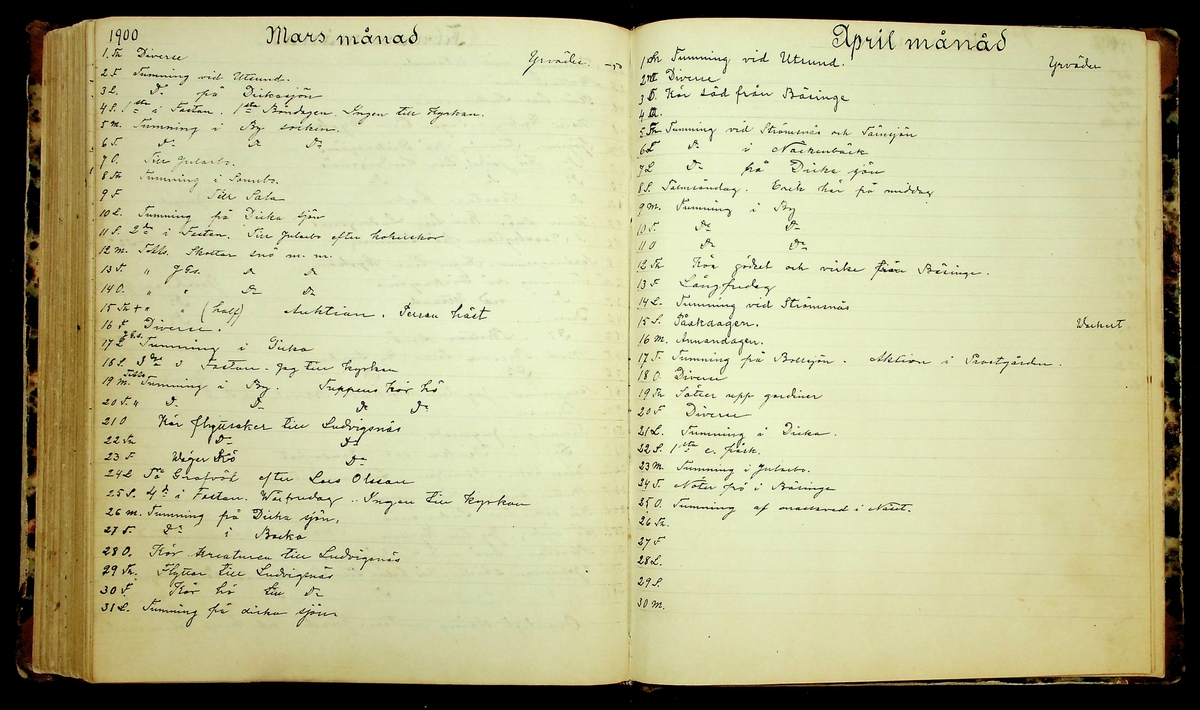 1900 Mars månad
1. Th Diverse Yrväder
2. F Tumning vid Utsund.
3 L. Do på Dickasjön
4 S. 1sta i Fastan. 1sta Böndagen. Ingen till Kyrkan.
5 M. Tumning i By socken.
6 T. Do Do Do
7 O. Till Jularbo.
8 Th Tumning i Sonnbo.
9 F Till Sala
10 L. Tumning på Dicka sjön
11 S. 2dra i Fastan. Till Jularbo efter
12 M. Skottar snö m. m.
13 T. " Do Do
14 O. " " Do Do
15 Th + " " (half) Auktion. Persson häst
16 F Diverse.
17 L Tumning i Dicka
18 S. 3dje i Fastan. Jag till Kyrkan
19 M. Tumning i By. Kör hö
20 T. " Do Do Do Do
21 O Kör till Ludvigsnäs
22 Th Do Do
23 F Väger Hö Do
24 L På Graföl efter Lars Olsson
25 S. 4de i Fastan. Wårfrudag. Ingen till Kyrkan
26 M. Tumning på Dicka sjön.
27 T. Do i Backa
28 O. Kör kreaturen till Ludvigsnäs
29 Th. Flyttar till Ludvigsnäs
30 F. Kör hö till Do
31 L. Tumning på dicka sjön
April månad
1 Tumning vid Utsund. Yrväder
2 Diverse
3 Kör säd från Bäsinge
4
5 Th Tumning vid Strömsnäs och
6 F Do i Näckenbäck
7 L Do på Dicka sjön
8 S. Palmsöndag. här på middag
9 M. Tumning i By
10 T. Do Do
11 O Do Do
12 Th Kör gödsel och virke från Bäsinge.
13 F Långfredag
14 L. Tumning vid Strömsnäs
15 S. Påskdagen. Vackert
16 M. Annandagen.
17 T. Tumning på Bollsjön. Aktion i Prostgården.
18 O. Diverse
19 Th Sätter upp gardiner
20 F Diverse
21 L. Tumning i Dicka.
22 S. 1sta e. påsk.
23 M. Tumning i Jularbo.
24 T. i Bäsinge
25 O. Tumning af i Näset.
26 Th.
27 F
28 L.
29 S.
30 M.